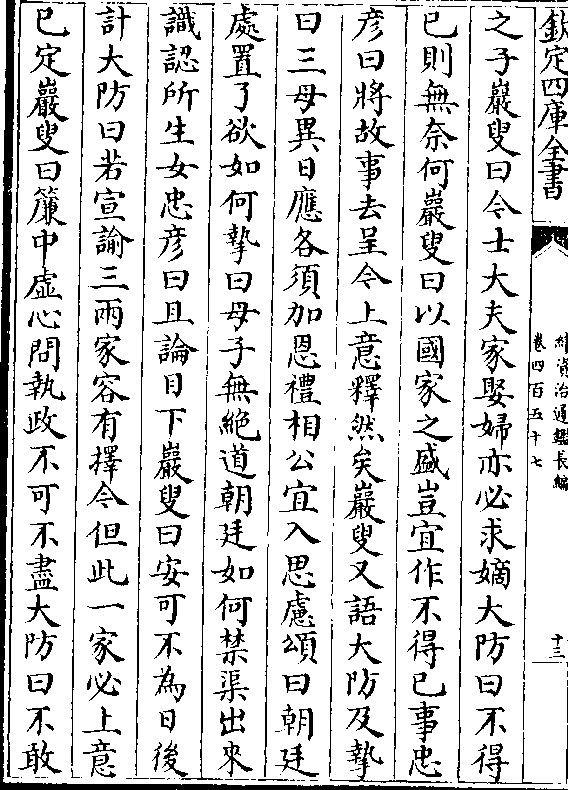 欽定四庫全書
續資治通鑑長編
卷四百五十七
十三
之子巖叟曰令士大夫家娶婦亦必求嫡大防曰不得
已則無奈何巖叟曰以國家之盛豈宜作不得已事忠
彦曰將故事去呈令上意釋然矣巖叟又語大防及摯
曰三母異日應各須加恩禮相公宜入思慮頌曰朝廷
處置了欲如何摯曰母子無絶道朝廷如何禁渠出來
識認所生女忠彦曰且論目下巖叟曰安可不為日後
計大防曰若宣諭三兩家容有擇令但此一家必上意
已定巖叟曰簾中虚心問執政不可不盡大防曰不敢